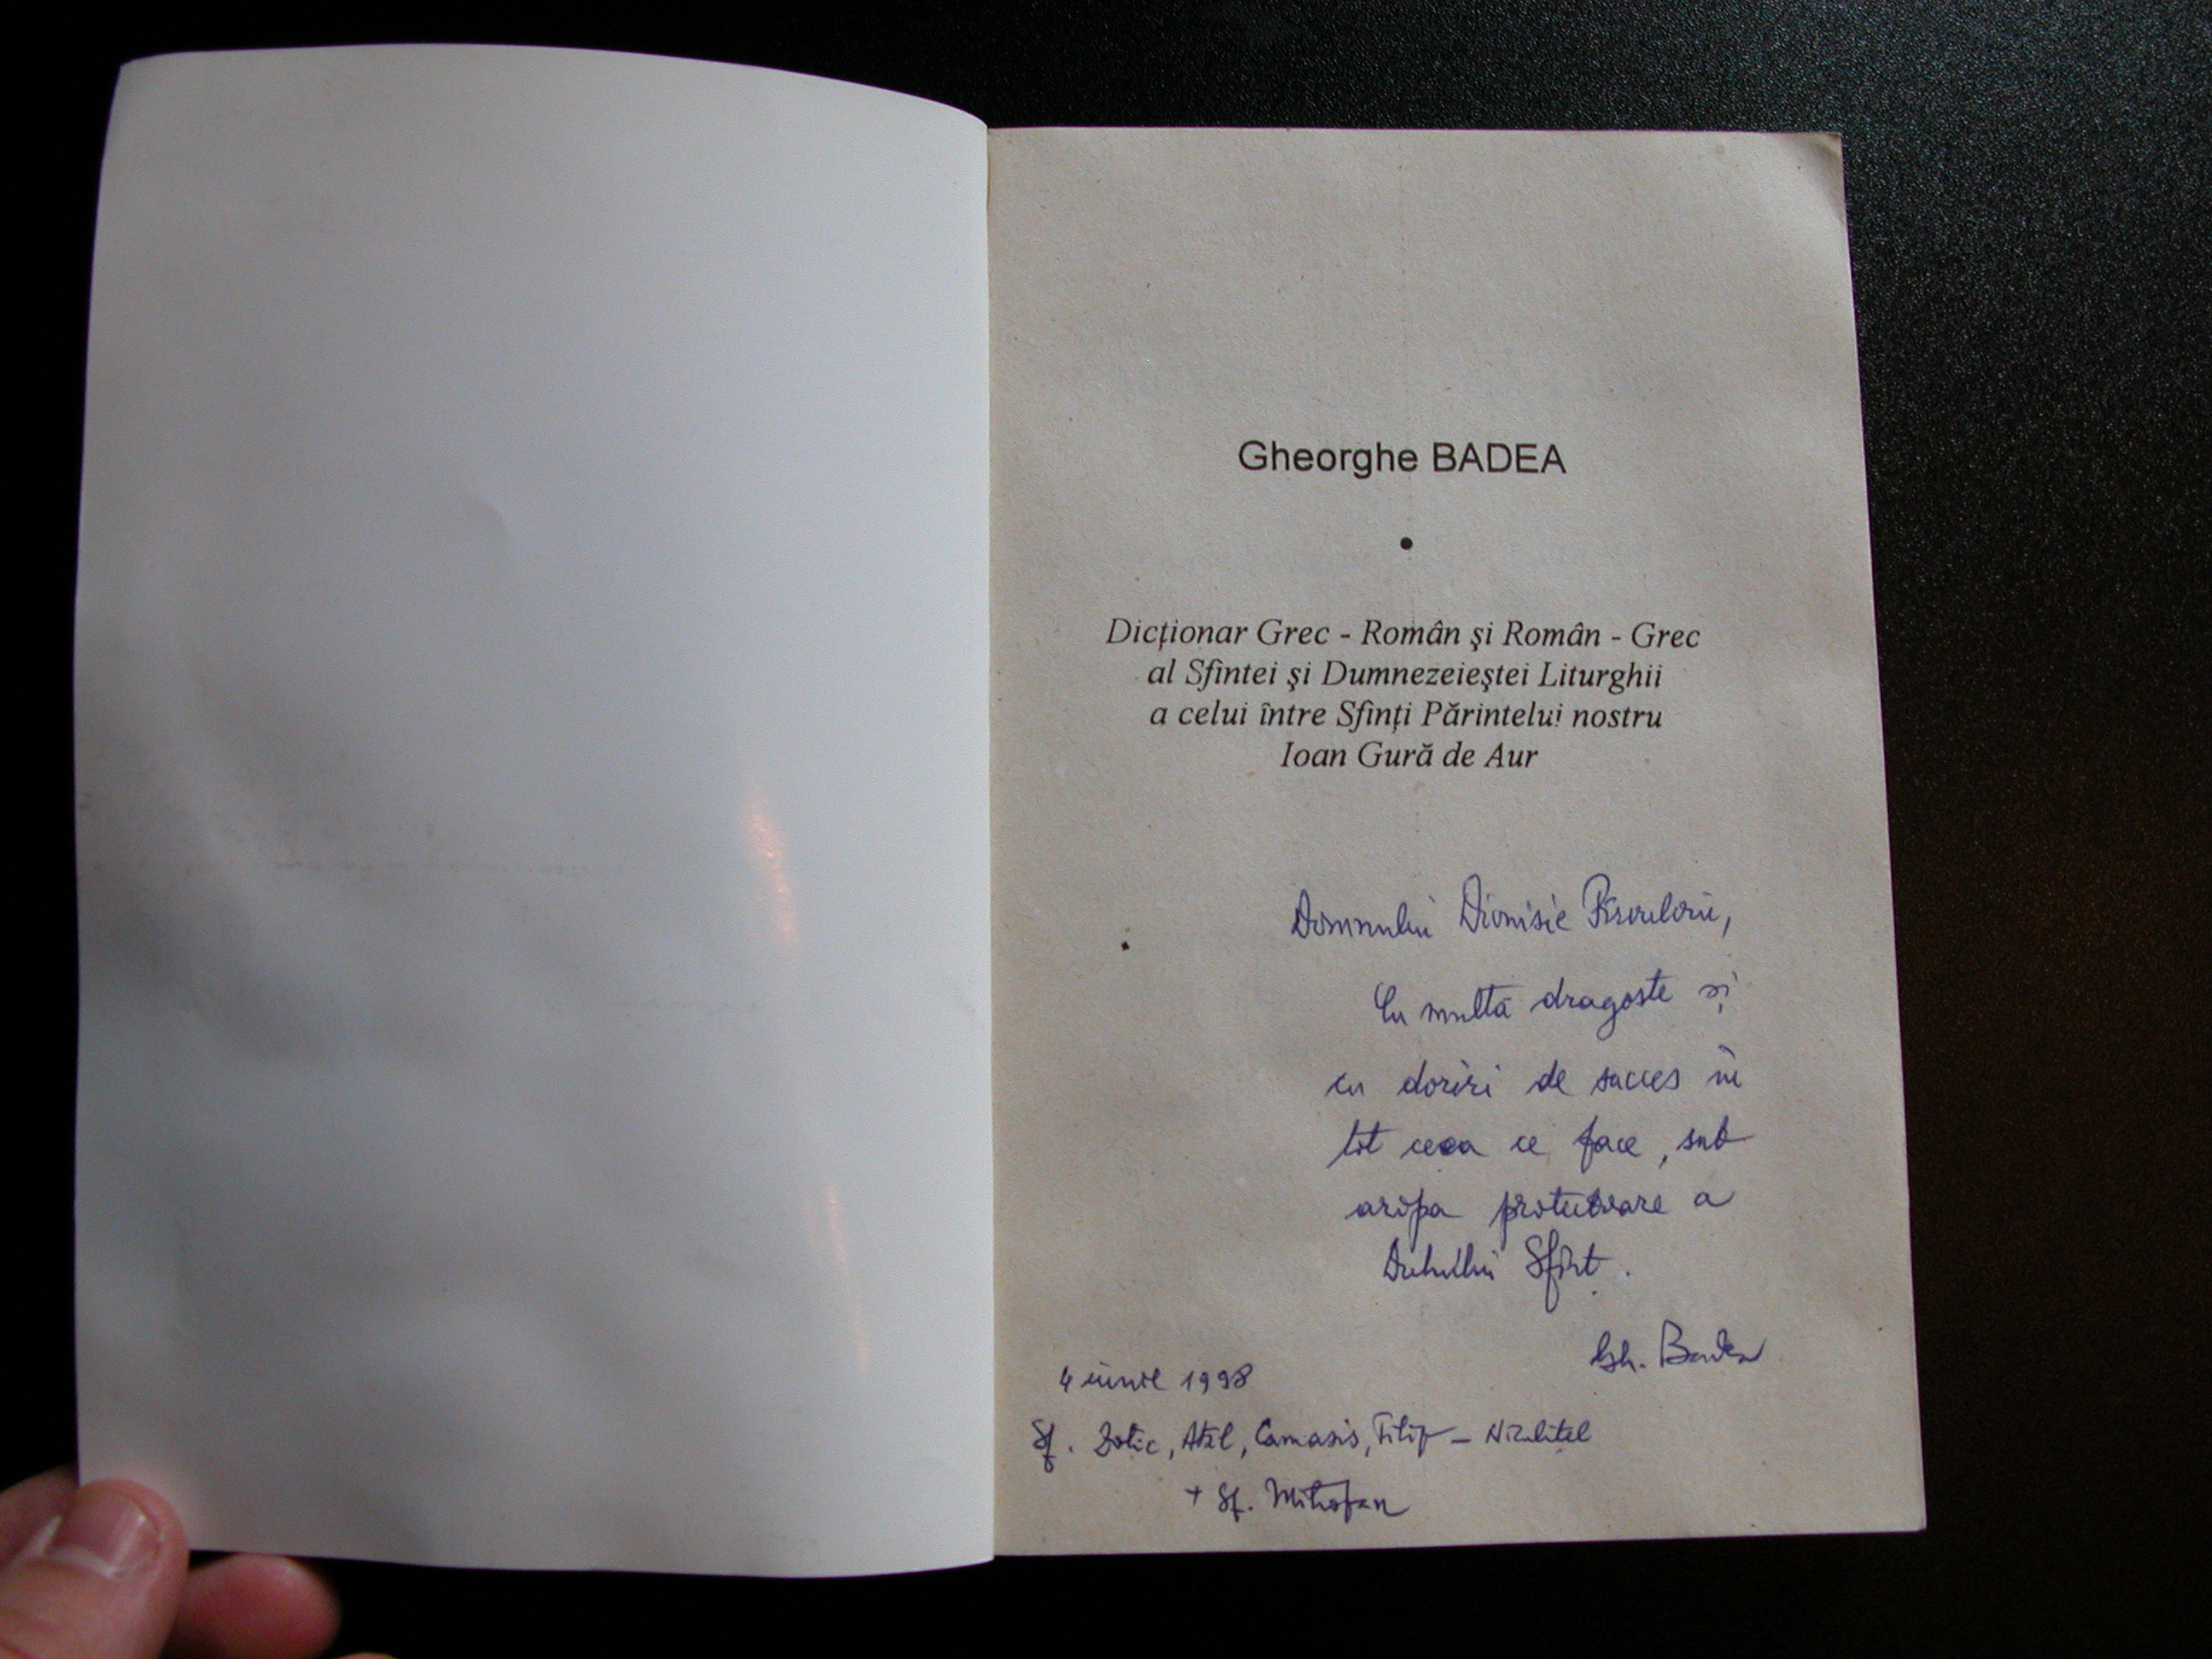 Gheorghe BADEA
•
Dicţionar Grec - Român şi Român - Grec
al Sfintei şi Dumnezeieştei Liturghii
a celui între Sfinţi Părintelui nostru
Ioan Gură de Aur
Domnului Dionisie
Cu multă dragoste și
cu doriri de succes în
tot ceea ce face, sub
aripa protectoare a
Duhului Sfînt.
Gh. Badea
4 iunie 1998
Sf. Zotic, Atal, Camasis, Filip - Niculițel
+ Sf. Mitrofan